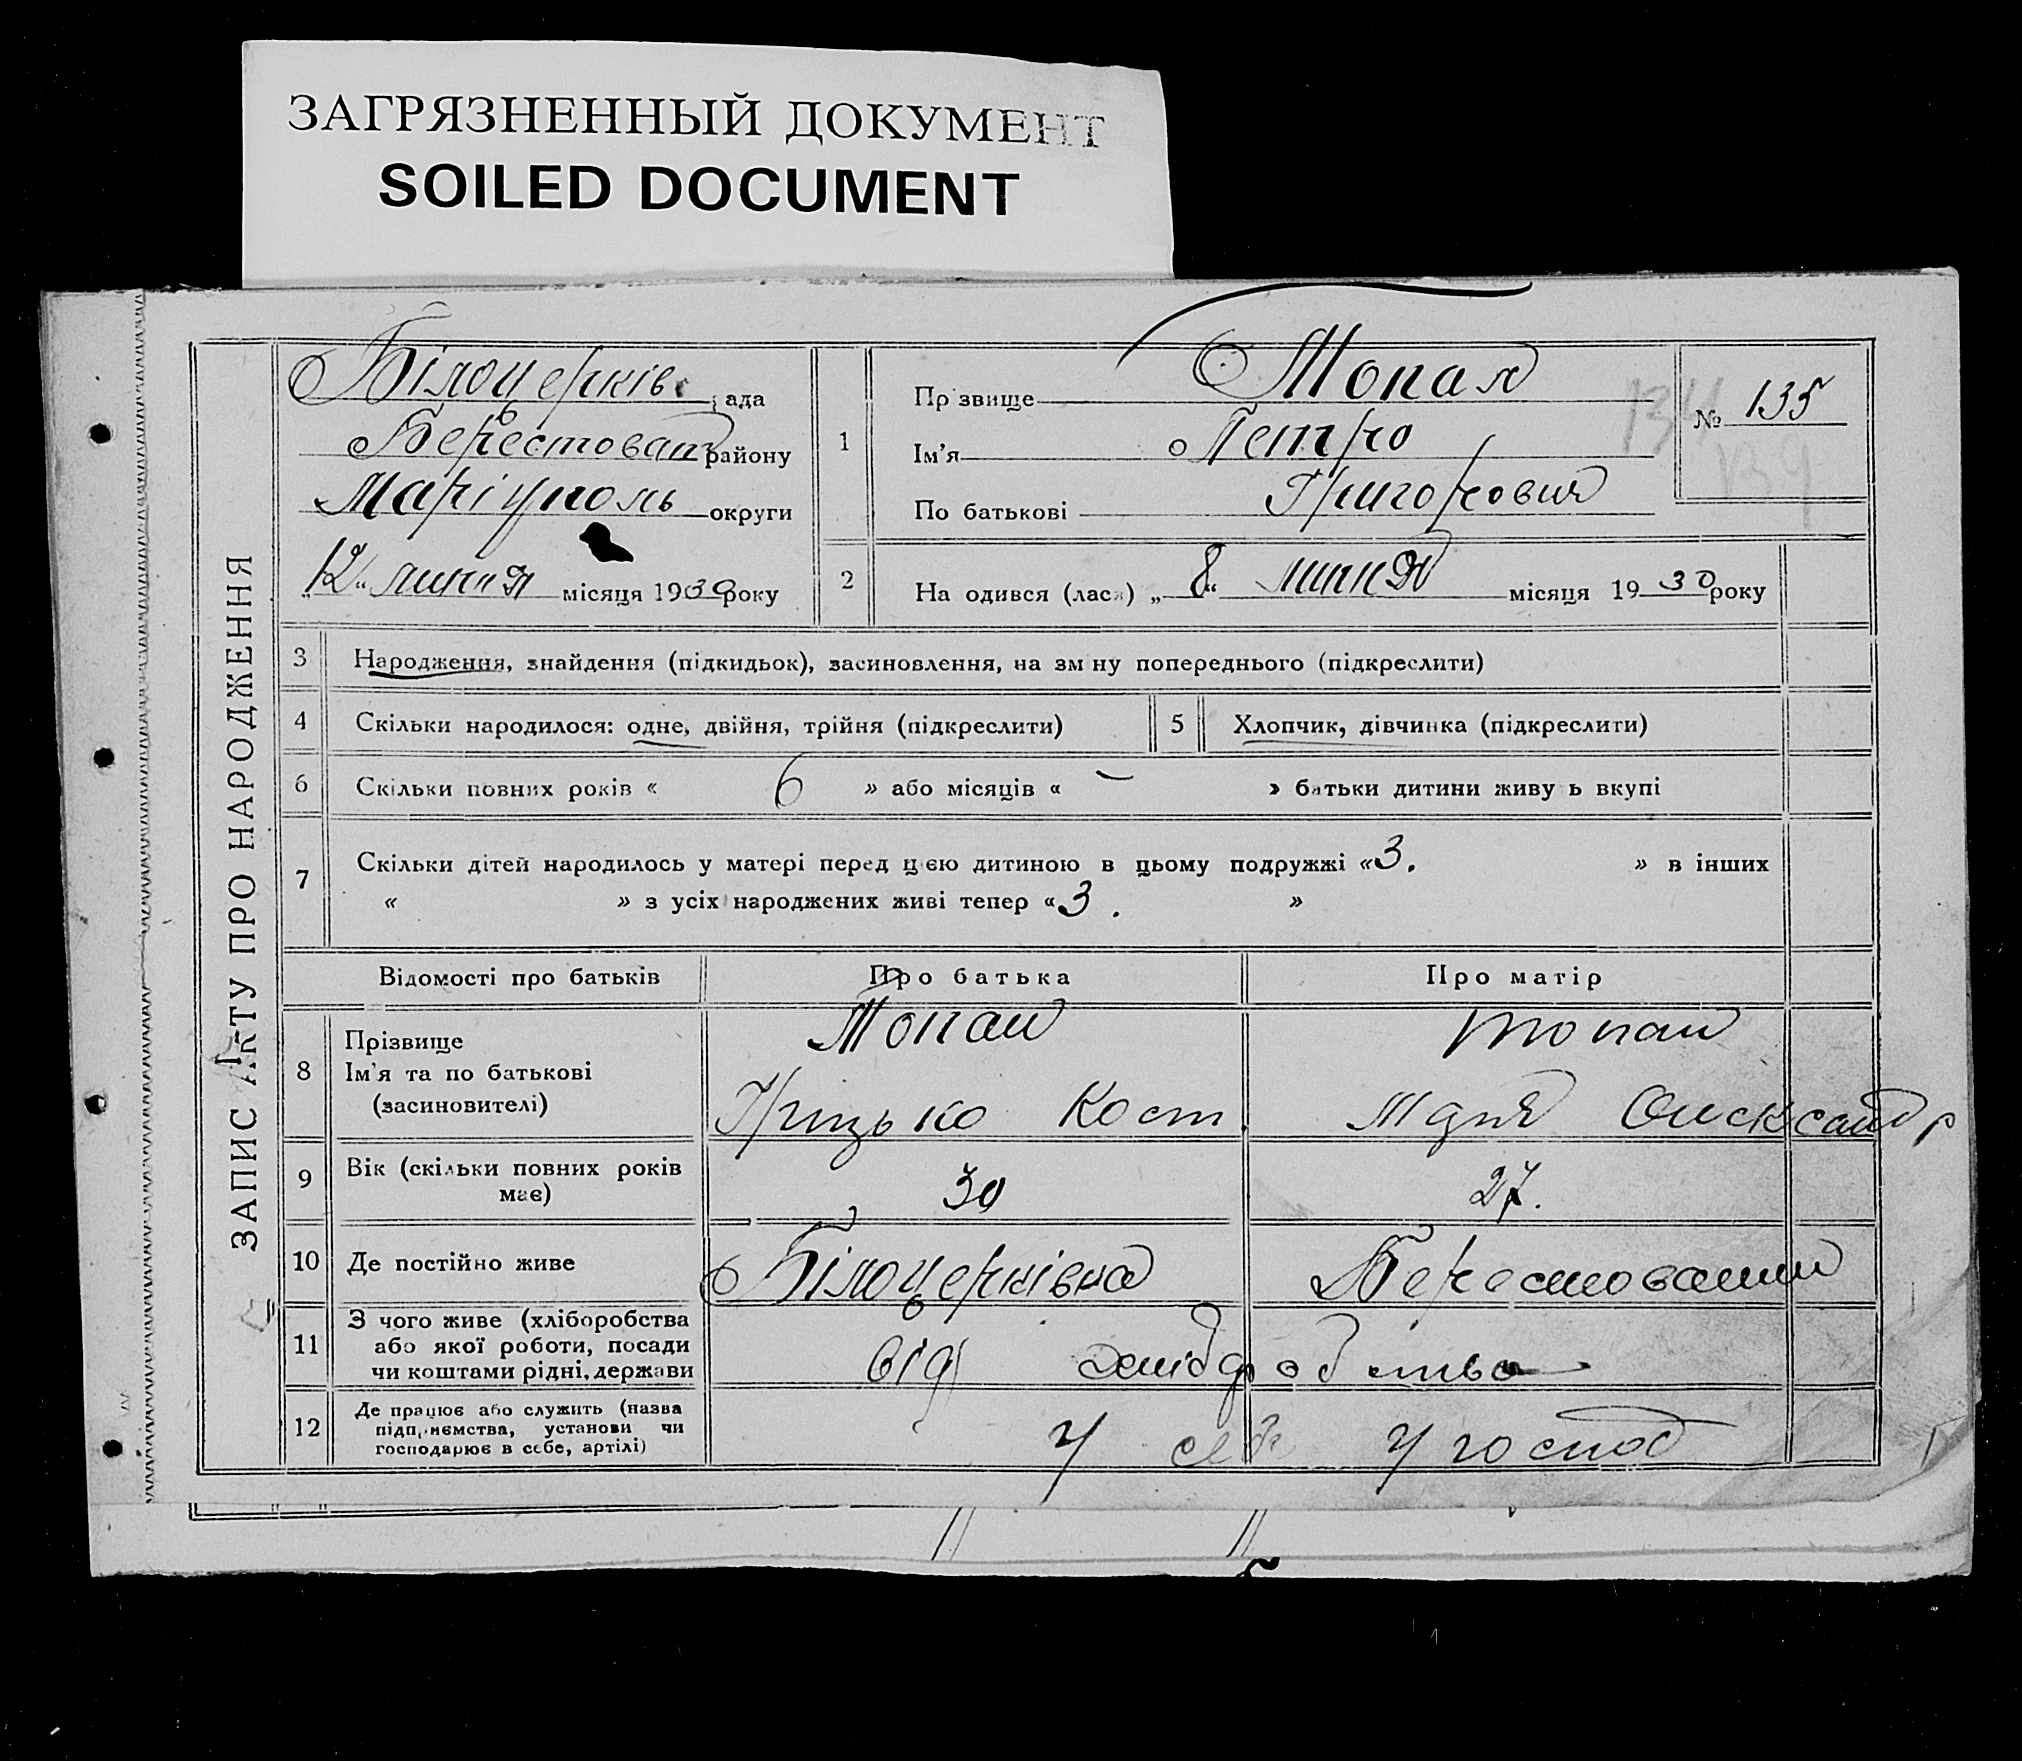 ЗАГРЯЗНЕННЫЙ ДОКУМЕНТ
SOILED DOCUMENT
ЗАПИС АКТУ ПРО НАРОДЖЕННЯ
Білоцерків ада
Берестоват району
Маріуполь округи
„12“ липня місяця 1930 року
1
Пр звище Топал
Ім'я Петро
По батькові Григорович
№ 135
134
139
2
На одився (лася) „8“ липня місяця 1930 року
3 Народження, знайдення (підкидьок), засиновлення, на зм ну попереднього (підкреслити)
4 Скільки народилося: одне, двійня, трійня (підкреслити)
5 Хлопчик, дівчинка (підкреслити)
6 Скільки повних років « 6 » або місяців « – » батьки дитини живу ь вкупі
7 Скільки дітей народилось у матері перед цією дитиною в цьому подружжі «3. » в інших
« » з усіх народжених живі тепер «3. »
Відомості про батьків Про батька Про матір
8 Прізвище Топал Топал
Ім'я та по батькові
(засиновителі) Грицько Кост. Олександр
9 Вік (скільки повних років
має) 30 27.
10 Де постійно живе Білоцерківка
11 З чого живе (хліборобства
або якої роботи, посади
чи коштами рідні, держави від хліборобства
12 Де працює або служить (назва
підприємства, установи чи
господарює в себе, артілі) У себе У господ